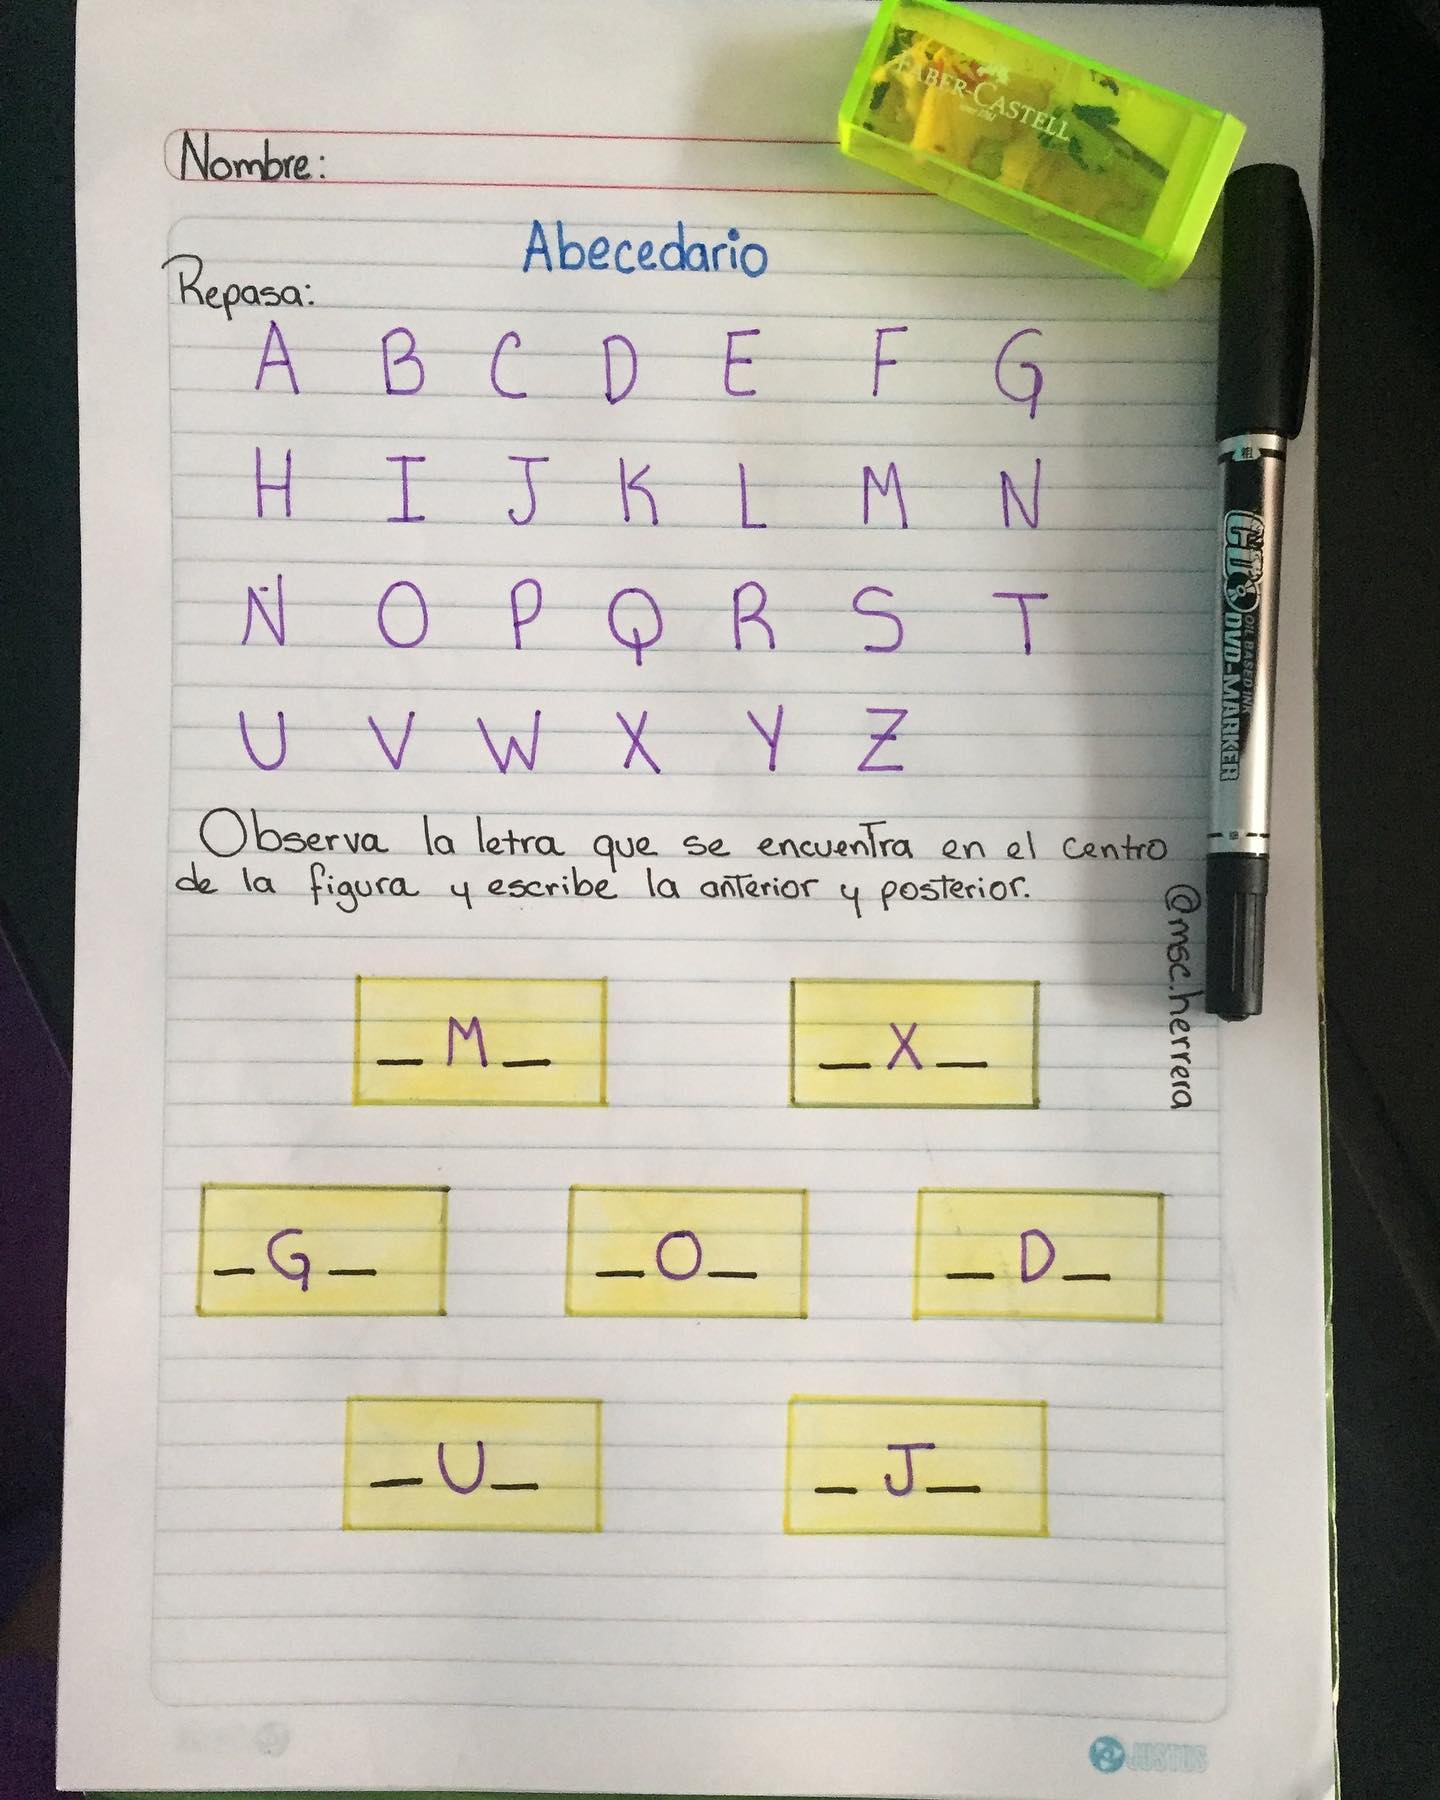 FABER-CASTELL
Nombre:
Abecedario
Repasa:
A B C D E F G
H I J K L M N
Ñ O P Q R S T
U V W X Y Z
Observa la letra que se encuentra en el centro
de la figura y escribe la anterior y posterior.
_ M _ _ X _
_ G _ _ O _ _ D _
_ U _ _ J _
@msc.herrera
OIL BASED INK
DVD-MARKER
JUSTUS